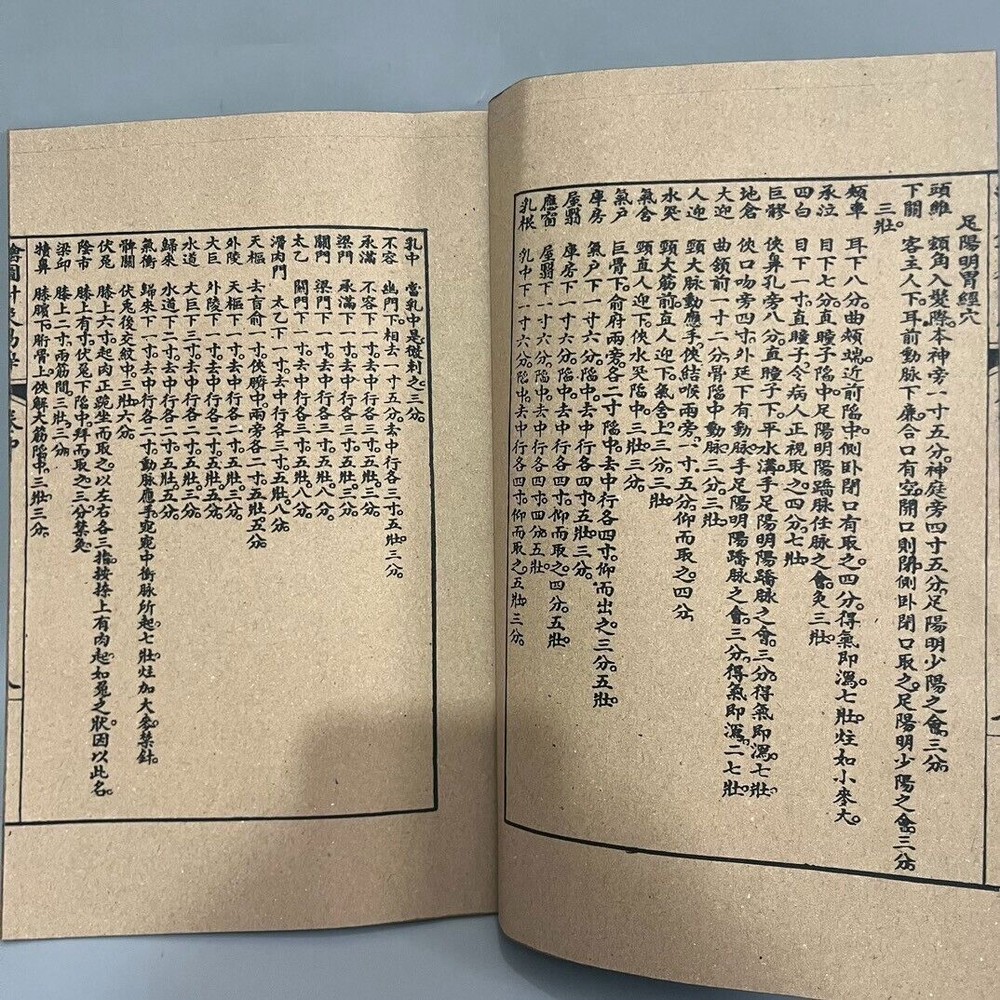 足陽明胃經穴
頭維 額角入髮際本神旁一寸五分。神庭旁四寸五分。足陽明少陽之會。三分。
下關 客主人下。耳前動脈下廉合口有空。開口則閉。側卧閉口取之。足陽明少陽之會。三分。
三壯。
頰車 耳下八分。曲頰端。近前陷中。側卧閉口有取之。四分。得氣即瀉。七壯。炷如小麥大。
承泣 目下七分。直瞳子陷中。足陽明陽蹻脈任脈之會。灸三壯。
四白 目下一寸。直瞳子。令病人正視取之。四分。七壯。
巨髎 俠鼻孔旁八分。直瞳子下。平水溝。手足陽明陽蹻脈之會。三分。得氣即瀉。七壯。
地倉 俠口吻旁四寸。外廷下有動脈。手足陽明陽蹻脈之會。三分。得氣即瀉。二七壯。
大迎 曲頷前一寸二分。骨陷中動脈。三分。三壯。
人迎 頸大脈動應手。俠結喉兩旁一寸五分。仰而取之。四分。
水突 頸大筋前。直人迎下。氣舍上。三分。三壯。
氣舍 頸直人迎下。俠天突陷中。三壯。三分。
氣戶 巨骨下。俞府兩旁各二寸陷中。去中行各四寸。仰而出之。三分。五壯。
庫房 氣戶下一寸六分。陷中。去中行各四寸。五壯。三分。
屋翳 庫房下一寸六分。陷中。去中行各四寸。仰而取之。四分。五壯。
膺窗 屋翳下一寸六分。陷中。去中行各四寸。四分。五壯。
乳根 乳中下一寸六分。陷中。去中行各四寸。仰而取之。五壯。三分。
乳中 當乳中是。微刺之。三分。
不容 幽門下。相去一寸五分。去中行各三寸。五壯。三分。
承滿 不容下一寸。去中行各三寸。五壯。三分。
梁門 承滿下一寸。去中行各三寸。五壯。八分。
關門 梁門下一寸。去中行各三寸。五壯。八分。
太乙 關門下一寸。去中行各三寸。五壯。八分。
滑肉門 太乙下一寸。去中行各三寸。五壯。八分。
天樞 去肓俞一寸。俠臍中。兩旁各二寸。五壯。五分。
外陵 天樞下一寸。去中行各二寸。五壯。三分。
大巨 外陵下一寸。去中行各二寸。五壯。五分。
水道 大巨下三寸。去中行各二寸。五壯。三分。
歸來 水道下二寸。去中行各二寸。五壯。五分。
氣衝 歸來下一寸。去中行各二寸。動脈應手宛宛中。衝脈所起。七壯。炷如大麥。禁針。
髀關 伏兔後交紋中。三壯。六分。
伏兔 膝上六寸起肉。正跪坐而取之。以左右各三指按捺。上有肉起如兔之狀。因以此名。
陰市 膝上三寸。伏兔下陷中。拜而取之。三分。禁灸。
梁印 膝上二寸。兩筋間。三壯。三分。
犢鼻 膝臏下。胻骨上。俠解大筋陷中。三壯。三分。